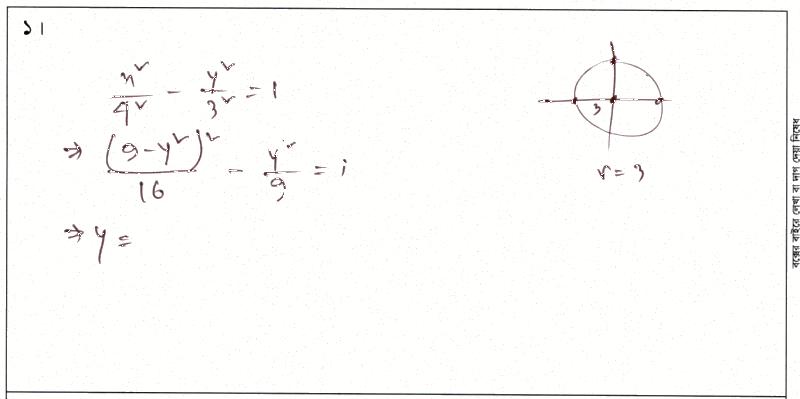 ১।
x²/4² - y²/3² = 1
⇒ (9-y²)²/16 - y²/9 = 1
3
r = 3
⇒ y =
বক্সের বাইরে লেখা বা দাগ দেয়া নিষেধ